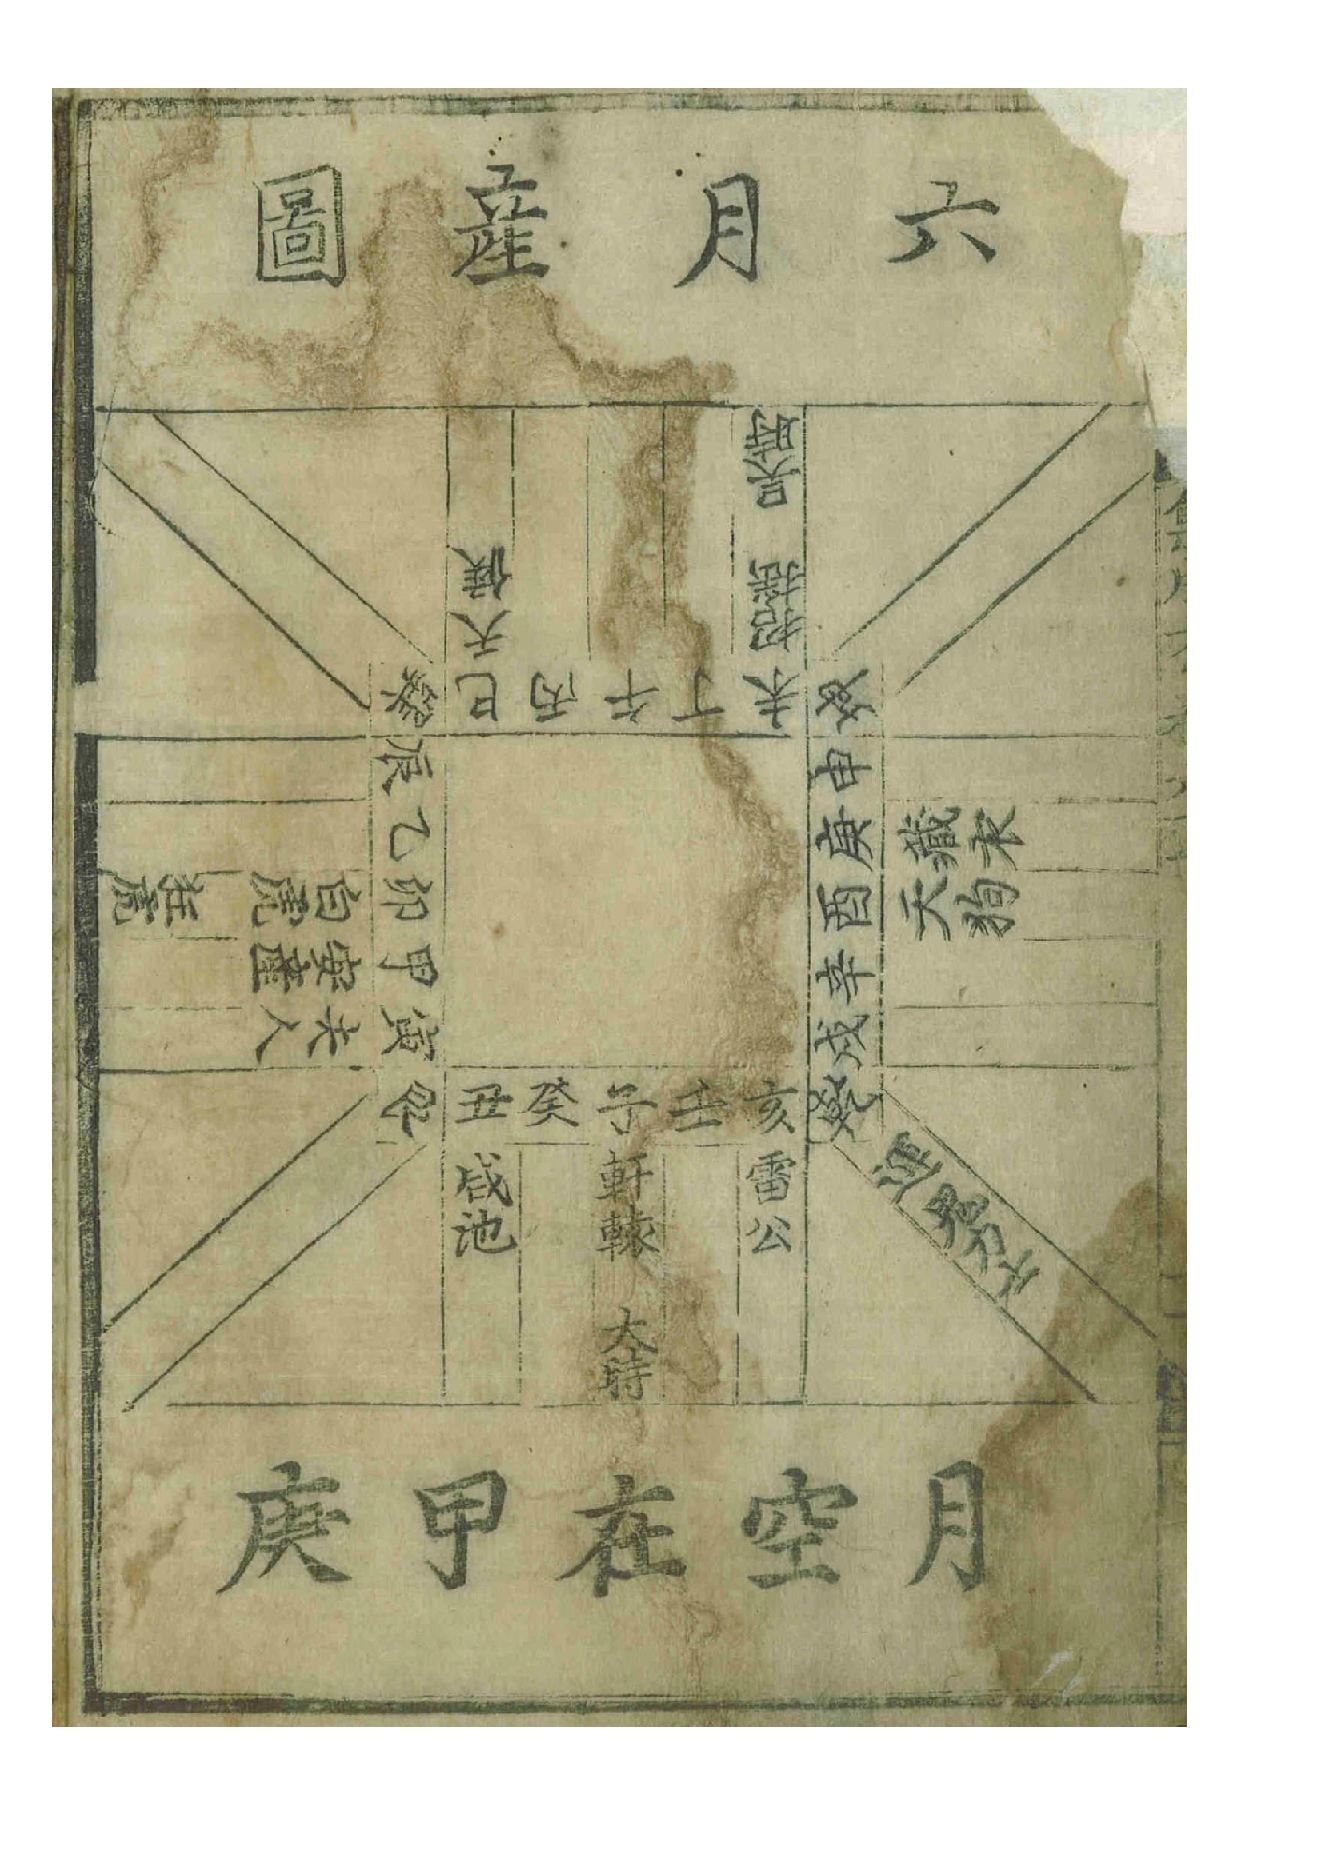 六月產圖
天候
招搖
吳時
巳丙午丁未
申庚酉辛戌
藏衣
天狗
亥壬子癸丑
雷公
軒轅
大時
咸池
寅甲卯乙辰
白虎
狂虎
安產
夫人
月空在甲庚